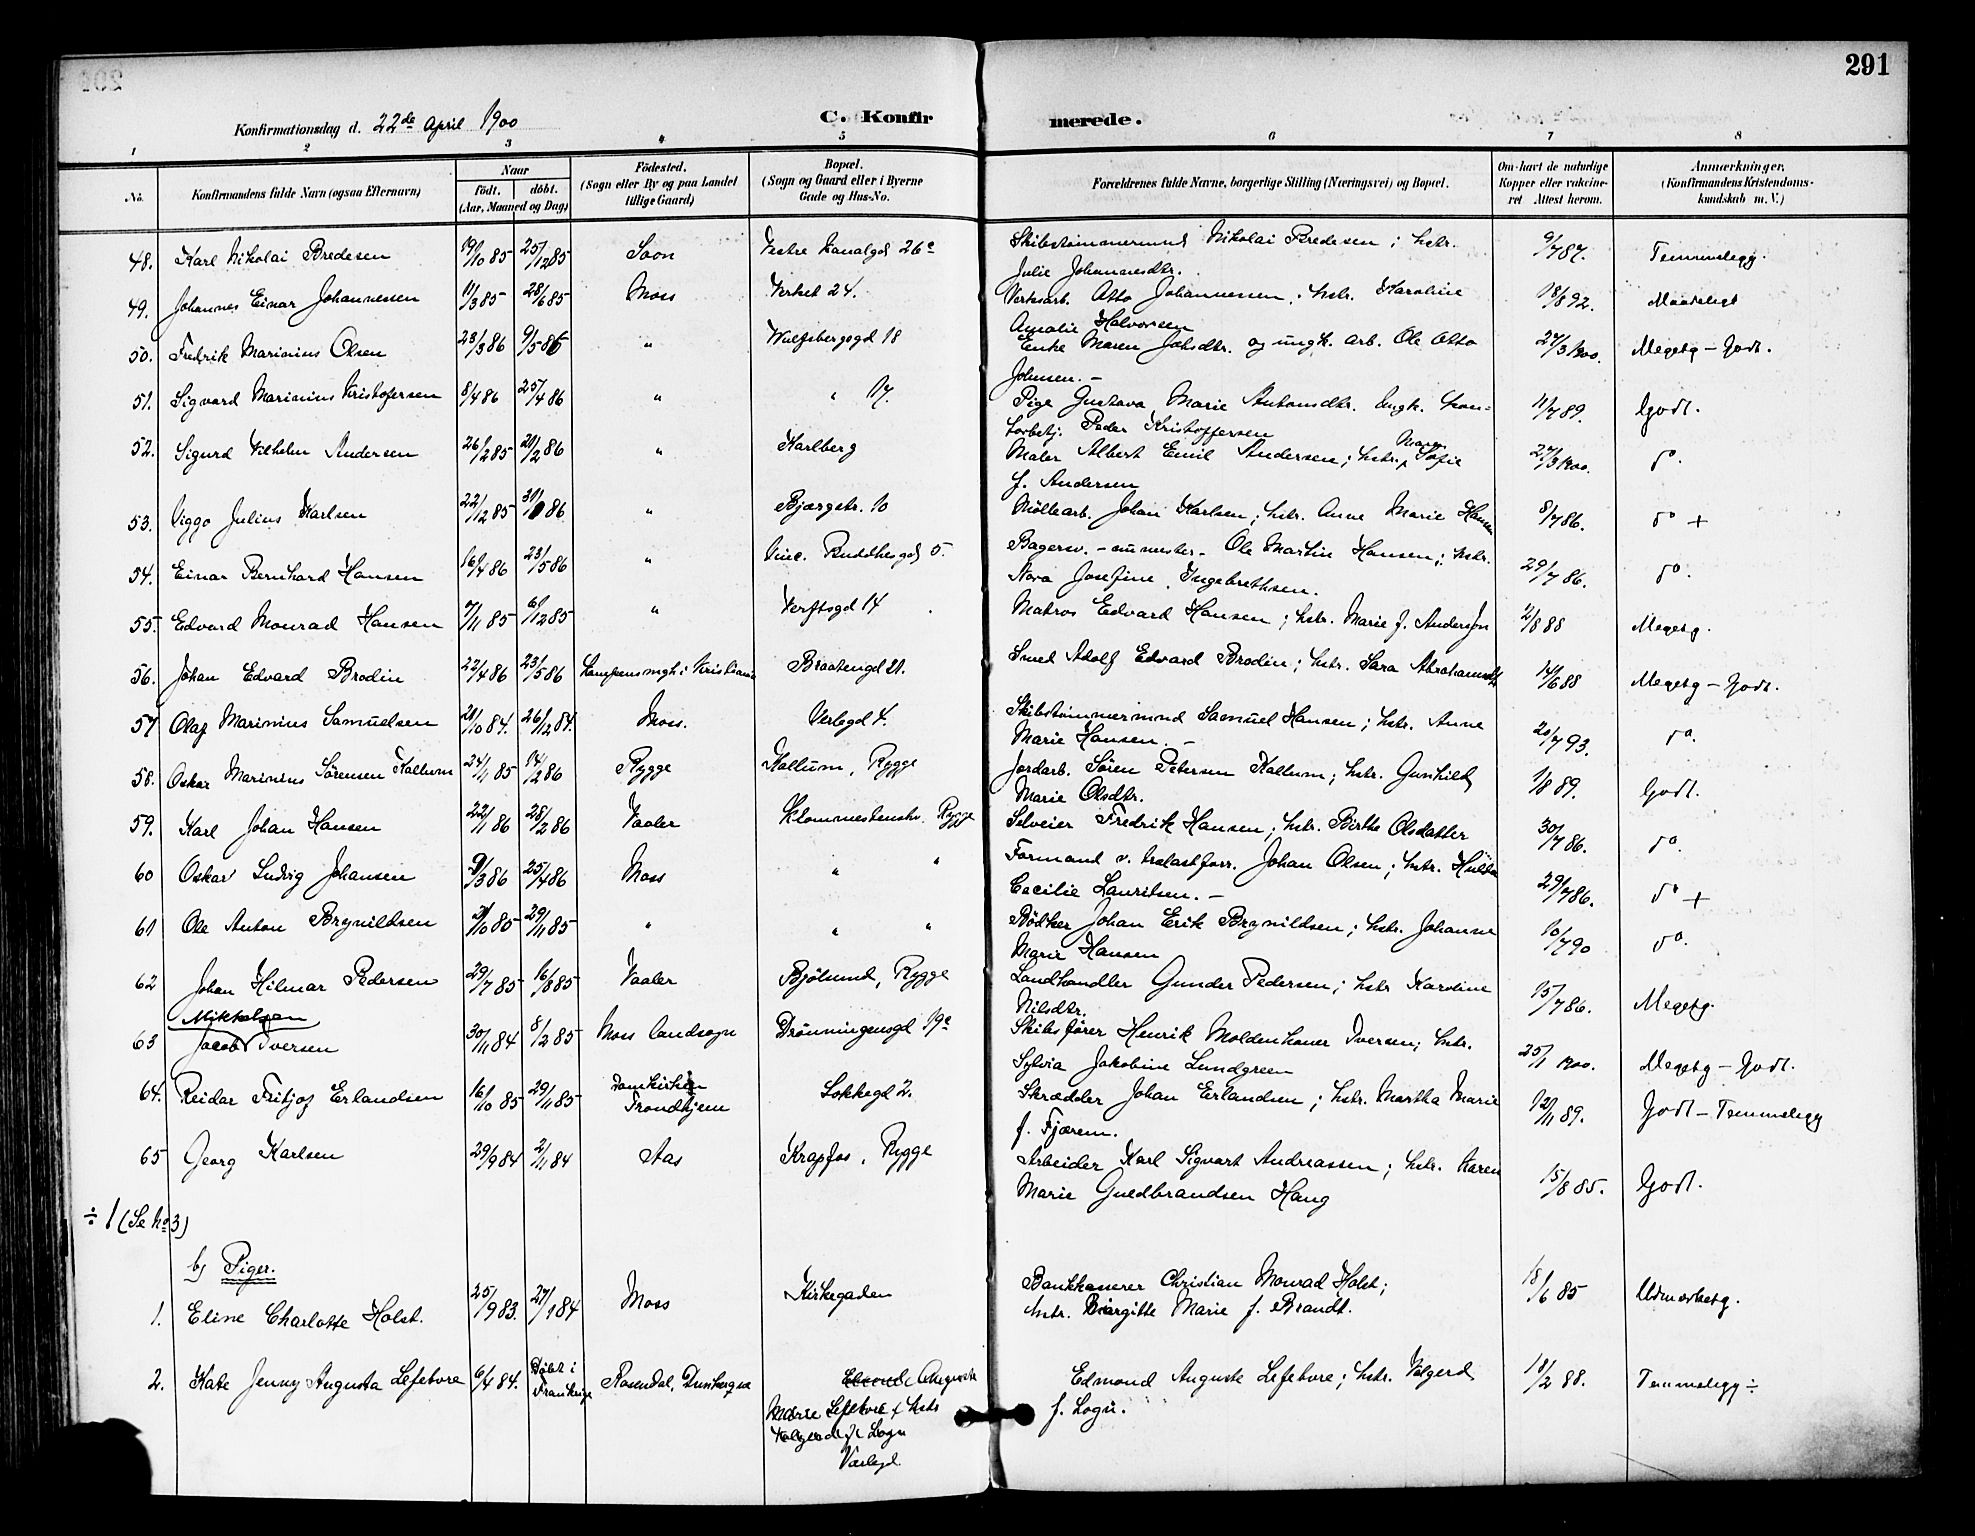 291
Konfirmationsdag d. 22de April 1900
C. Konfirmerede.
1 2 3 4 5 6 7 8
No. Konfirmandens fulde Navn (ogsaa Efternavn) Naar födt. döbt. (Aar, Maaned og Dag) Födested. (Sogn eller By og paa Landet tillige Gaard) Bopæl. (Sogn og Gaard eller i Byerne Gade og Hus-No. Forældrenes fulde Navne, borgerlige Stilling (Næringsvei) og Bopæl. Om havt de naturlige Kopper eller vakcineret Attest herom. Anmærkninger, (Konfirmandens Kristendomskundskab m. V.)
48. Karl Nikolai Bredesen 19/10 85 25/12 85 Soon Vestre Kanalgd 26c Skibstømmermnd Nikolai Bredesen; hstr. Julie Johannesdtr. 9/7 87. Temmelegg.
49. Johannes Einar Johannessen 11/3 85 28/6 85 Moss Verket 24. Verksarb. Otto Johannessen; hstr. Karoline Amalie Halvorsen 18/8 92. Maadeligt
50. Fredrik Marinius Olsen 23/3 86 9/5 86 " Wulfsbergsgd 18 Enke Maren Johsdtr. og ungk. arb. Ole Otto Johnsen. - 27/3 1900. Megetg - Godt.
51. Sigvard Marinius Kristofersen 8/4 86 25/4 86 " " 17. Pige Gustava Marie Antonsdtr. Ungk. Kontorbetj. Peder Kristoffersen 11/7 89. Godt.
52. Sigurd Vilhelm Andersen 26/12 85 21/2 86 " Karlberg Maler Albert Emil Andersen; hstr. Maren Sofie f. Andersen 27/3 1900. do.
53. Viggo Julius Karlsen 22/12 85 31/1 86 " Bjærgstr. 10 Møllearb. Johan Karlsen; hstr. Anne Marie Hansen 8/7 86. do +
54. Einar Bernhard Hansen 16/4 86 23/5 86 " Vinc. Buddhesgd 5. Bagersv. - nu mester - Ole Martin Hansen; hstr. Nora Josefine Ingebrethsen. 29/7 86. do.
55. Edvard Monrad Hansen 7/11 85 6/12 85 " Verftsgd 14 Matros Edvard Hansen; hstr. Marie f. Andersen 2/8 88 Megetg.
56. Johan Edvard Brodin 22/4 86 23/5 86 Kampensmgh i Kristiania Braatengd 21. Smed Adolf Edvard Brodin; hstr. Sara Abrahamsdtr 14/6 88 Megetg - Godt.
57 Olaf Marinius Samuelsen 21/10 84. 26/12 84. Moss. Værlegd 4. Skibstømmermnd Samuel Hansen; hstr. Anne Marie Hansen. - 20/7 93. do.
58. Oskar Marinius Sørensen Kallum 24/11 85 14/2 86 Rygge Kallum, Rygge Jordarb. Søren Petersen Kallum; hstr. Gunhild Marie Olsdtr. 1/8 89. Godt.
59. Karl Johan Hansen 22/1 86 28/2 86 Vaaler Klommestenshv. Rygge Selveier Fredrik Hansen; hstr. Birthe Olsdatter 30/7 86. do.
60 Oskar Ludvig Johansen 9/3 86 25/4 86 Moss " " Formand v. Johan Olsen; hstr. Hulda Cecilie Lauritsen. - 29/7 86. do +
61 Ole Anton Brynildsen 3/10 85 29/11 85 " " " Bødker Johan Erik Brynildsen; hstr. Johanne Marie Hansen 10/7 90 do.
62 Johan Hilmar Pedersen 29/7 85 16/8 85 Vaaler Bjølsund, Rygge Landhandler Gunder Pedersen; hstr Karoline Nilsdtr. 15/7 86. Megetg.
63 Mikkelsen Jacob Iversen 30/11 84 8/2 85 Moss landsogn Drønningensgd 19c Skibsfører Henrik Moldenhauer Iversen; hstr. Sylvia Jakobine Lundgreen 25/1 1900. Megetg - Godt.
64. Reidar Fritjof Erlandsen 16/10 85 29/11 85 Domkirken Trondhjem Løkkegd 2. Skrædder Johan Erlandsen; hstr. Martha Marie f. Fjærem. 12/11 89. Godt - Temmelegg
65 Georg Karlsen 29/9 84 2/11 84 Aas Krapfos, Rygge Arbeider Karl Sigvart Andreassen; hstr. Karen Marie Guldbrandsen Haug 15/8 85. Godt.
÷ 1 (Se No 3)
b) Piger.
1. Eline Charlotte Holst. 25/9 83. 27/1 84 Moss Kirkegaden Bankkasserer Christian Monrad Holst; hstr. Birgitte Marie f. Brandt. 18/6 85 Udmærketg.
2. Kate Jenny Augusta Lefebvre 6/4 84. Døbt i Frankrige Rosendal, Dunkerque Edmond Auguste Marie Lefebvre & hstr Valgerd f. Logn Værlegd. Edmond Auguste Lefebvre; hstr. Valgerd f. Logn. 18/2 88. Temmelegg ÷